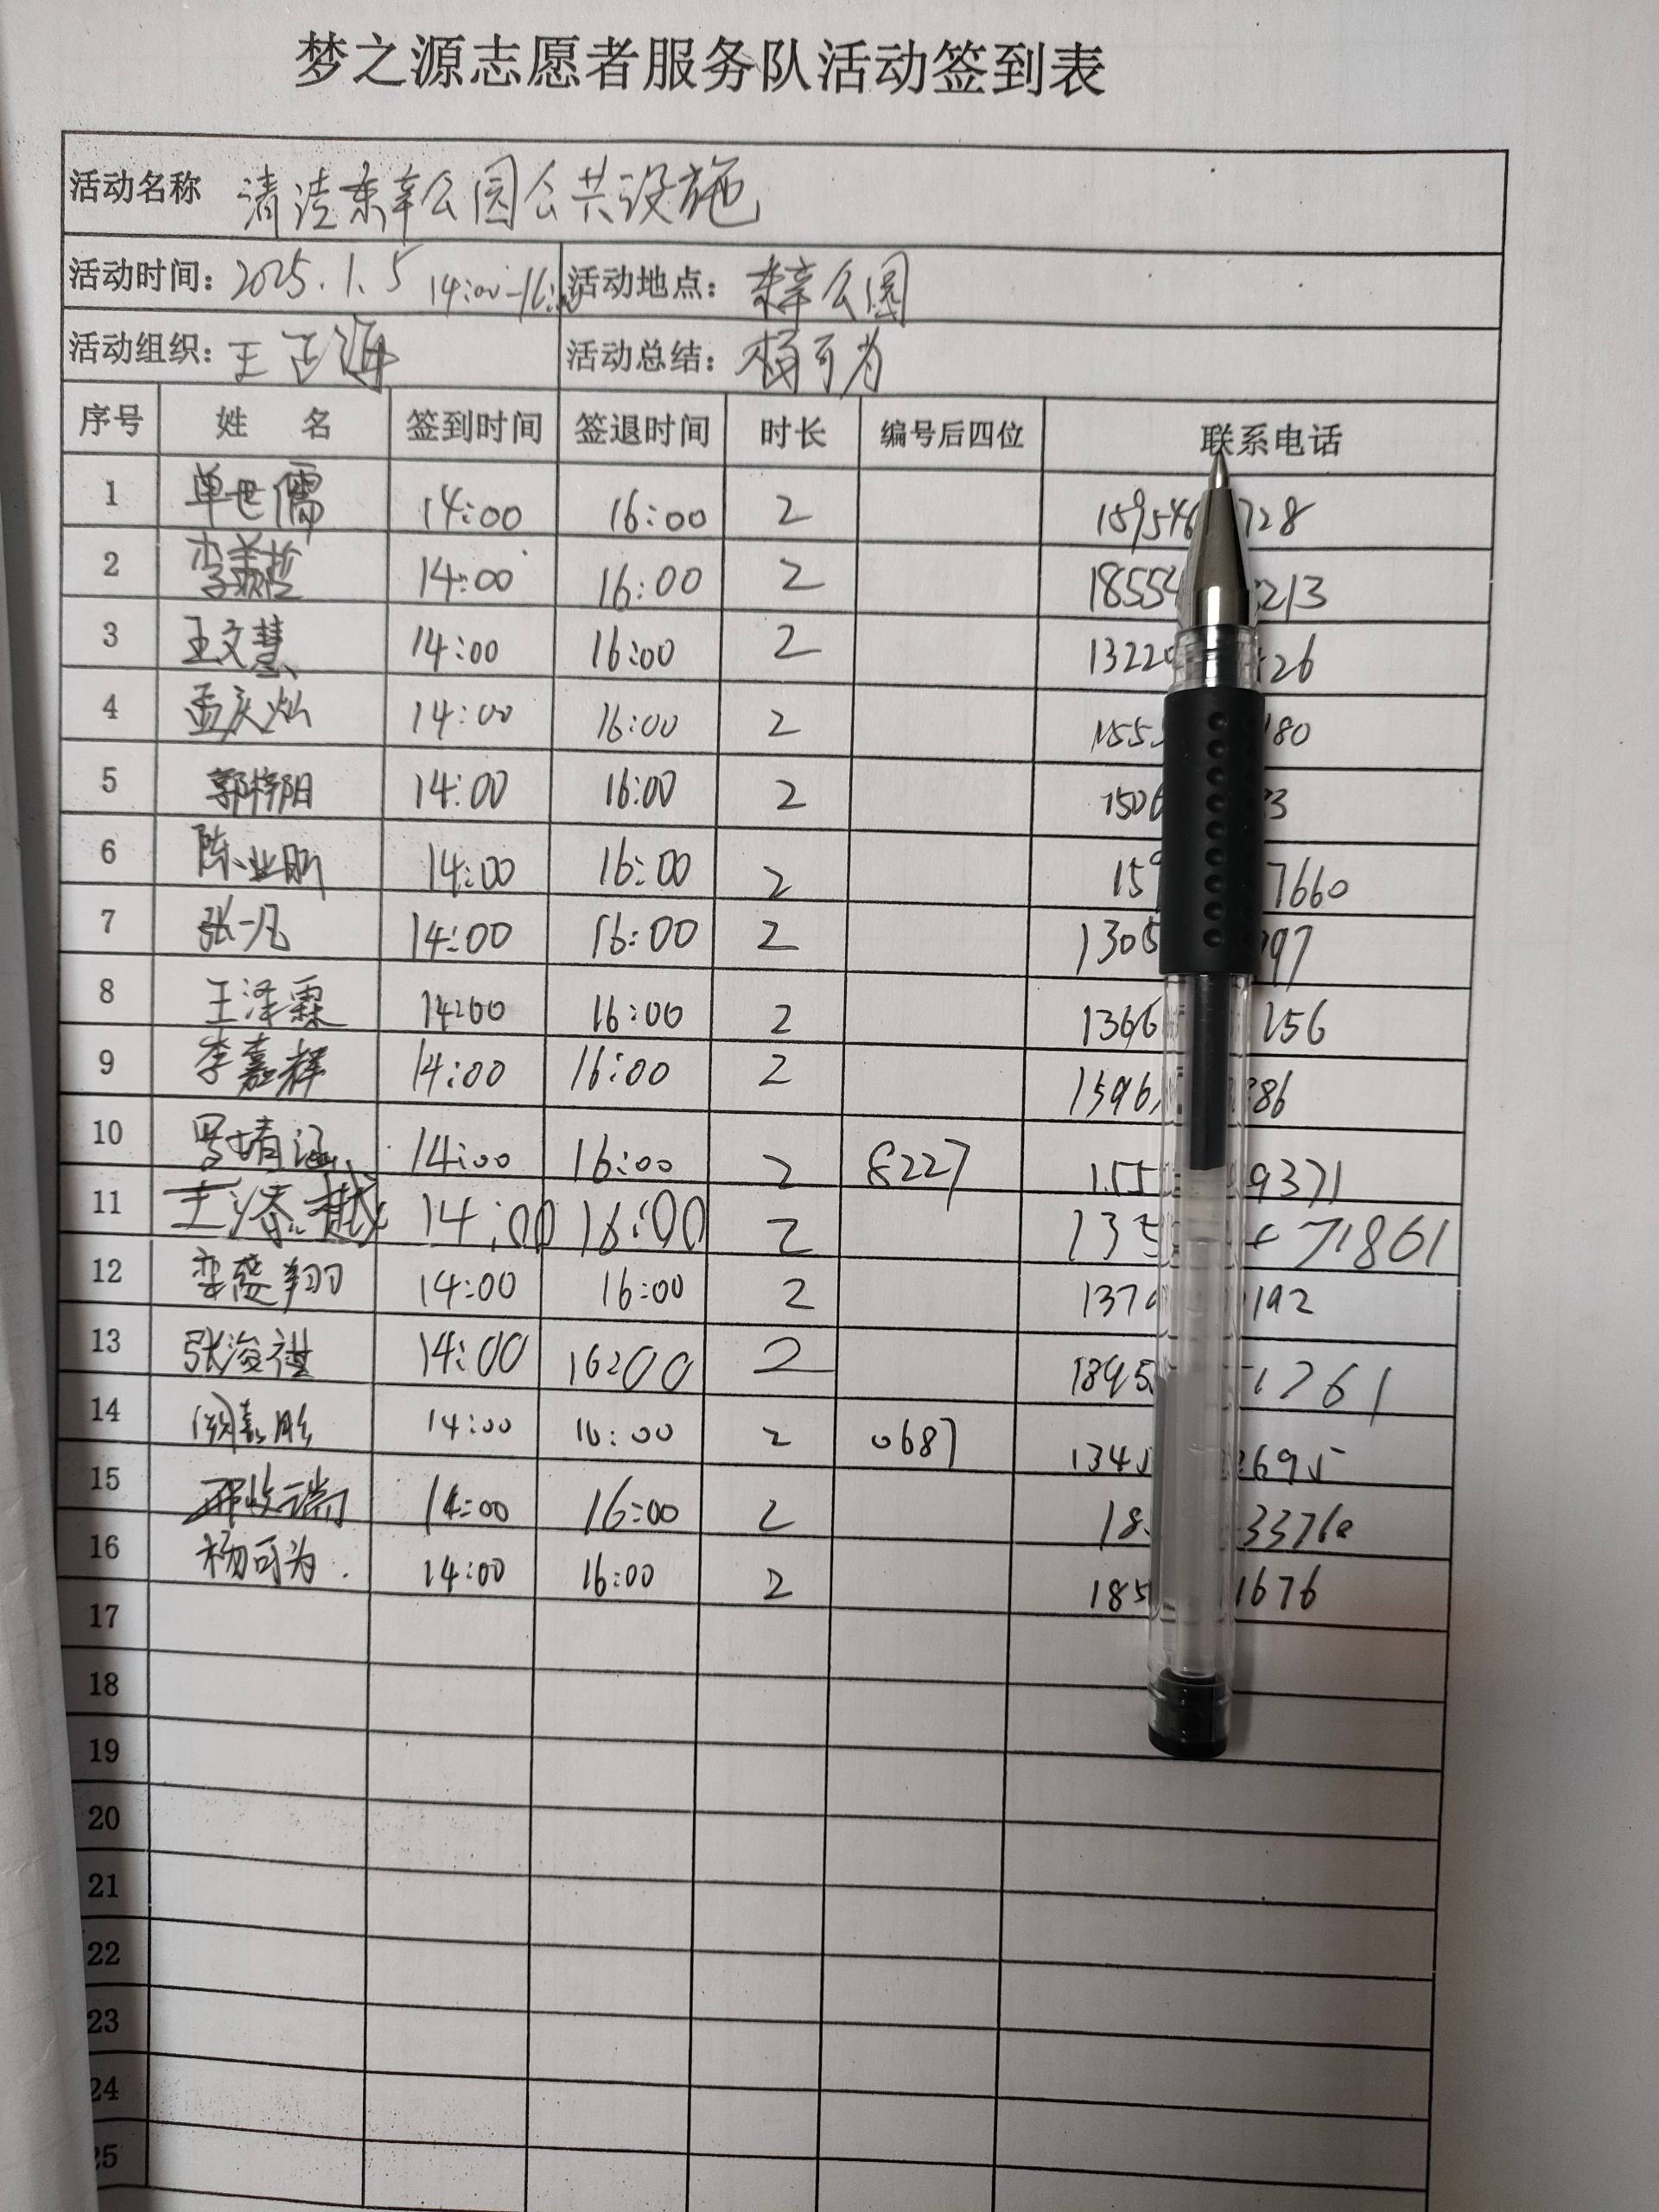 梦之源志愿者服务队活动签到表
活动名称 清洁东辛公园公共设施
活动时间: 2025.1.5 14:00-16:00 活动地点: 东辛公园
活动组织: 王正海 活动总结: 杨可为
序号 姓 名 签到时间 签退时间 时长 编号后四位 联系电话
1 单世儒 14:00 16:00 2 15954 728
2 李美哲 14:00 16:00 2 1855 213
3 王文慧 14:00 16:00 2 1322 26
4 孟庆灿 14:00 16:00 2 1555 180
5 郭梓阳 14:00 16:00 2 150 3
6 陈业 14:00 16:00 2 15 7660
7 张一凡 14:00 16:00 2 1305 97
8 王泽霖 14:00 16:00 2 1366 156
9 李嘉辉 14:00 16:00 2 1596 386
10 罗婧涵 14:00 16:00 2 8227 155 9371
11 王添越 14:00 16:00 2 13 71861
12 栾 翔 14:00 16:00 2 137 192
13 张浚祺 14:00 16:00 2 1895 1761
14 14:00 16:00 2 0687 134 2695
15 14:00 16:00 2 18 33760
16 杨可为 14:00 16:00 2 185 1676
17
18
19
20
21
22
23
24
25